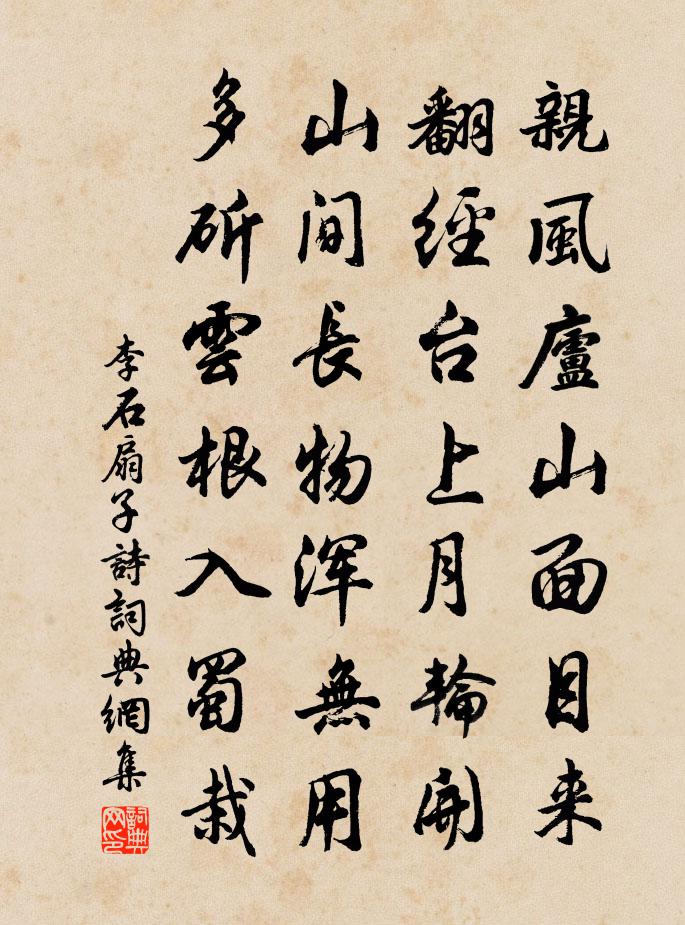 親風廬山面目来
翻經台上月輪開
山間長物浑無用
多斫雲根入蜀栽
李石扇子詩詞典網集
詞典网印